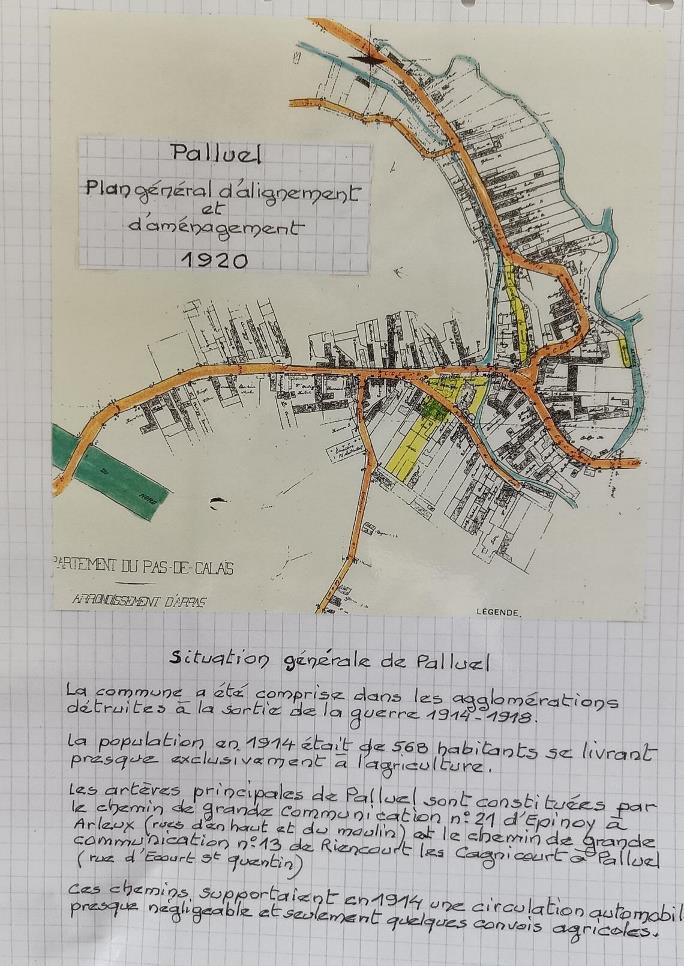 Palluel
Plan général d'alignement
et
d'aménagement
1920
DU
NORD
PARTEMENT DU PAS-DE-CALAIS
ARRONDISSEMENT D'ARRAS
LÉGENDE
Situation générale de Palluel
La commune a été comprise dans les agglomérations
détruites à la sortie de la guerre 1914-1918.
La population en 1914 était de 568 habitants se livrant
presque exclusivement à l'agriculture.
Les artères principales de Palluel sont constituées par
le chemin de grande communication n°21 d'Epinoy à
Arleux (rues d'en haut et du moulin) et le chemin de grande
communication n°13 de Riencourt les Cagnicourt à Palluel
(rue d'Ecourt st quentin)
Ces chemins supportaient en 1914 une circulation automobil
presque négligeable et seulement quelques convois agricoles.